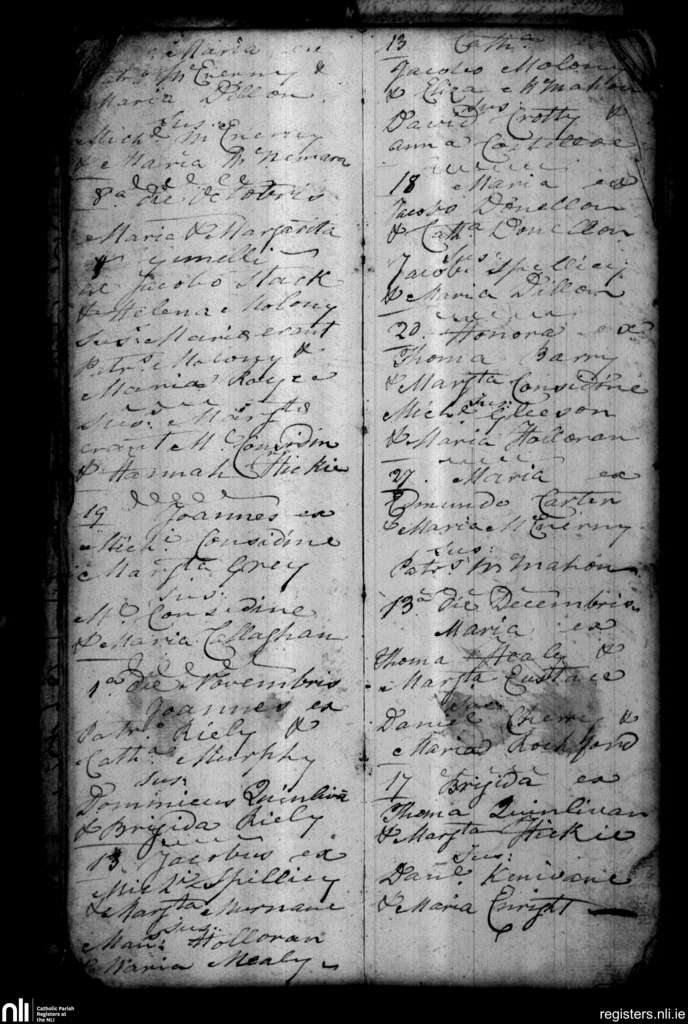 Maria ex
Patrs McEnerny &
Maria Dillon
Sus:
Michl McEnerny
& Maria McNemara
8a die Octobris
Maria & Margarita
gemelli
ex Jacobo Stack
& Helena Molony
Sus: Maria erant
Patrs Molony &
Maria
Sus: Margta
erant Ml Considin
& Hannah Hickie
19 Joannes ex
Michl Considine
& Margta Grey
Sus:
Ml Considine
& Maria Callaghan
1a die Novembris
Joannes ex
Patrs Riely &
Catha Murphy
Sus:
Dominicus Quinlivan
& Brigida Riely
13 Jacobus ex
Michl Spilliey
& Margta Murnane
Sus:
Holloran
& Maria Mealy
13 Catha
Jacobo Molony
& Eliza McMahon
Sus:
David Crotty &
Anna Costilloe
18 Maria ex
Jacobo Donellon
& Catha Donellon
Sus:
Jacobs Spilliey
& Maria Dillon
20 Honora ex
Thoma Barry
& Margta Considine
Sus:
Michl Gleeson
& Maria Holloran
27 Maria ex
Edmundo Carter
& Maria McEnerny
Sus:
Patrs McMahon
13a die Decembris
Maria ex
Thoma Healy &
Margta Eustace
Sus:
Daniel &
Maria Rochford
17 Brigida ex
Thoma Quinlivan
& Margta Hickie
Sus:
Danl Kinivane
& Maria Enright
nli Catholic Parish
Registers at
the NLI
registers.nli.ie